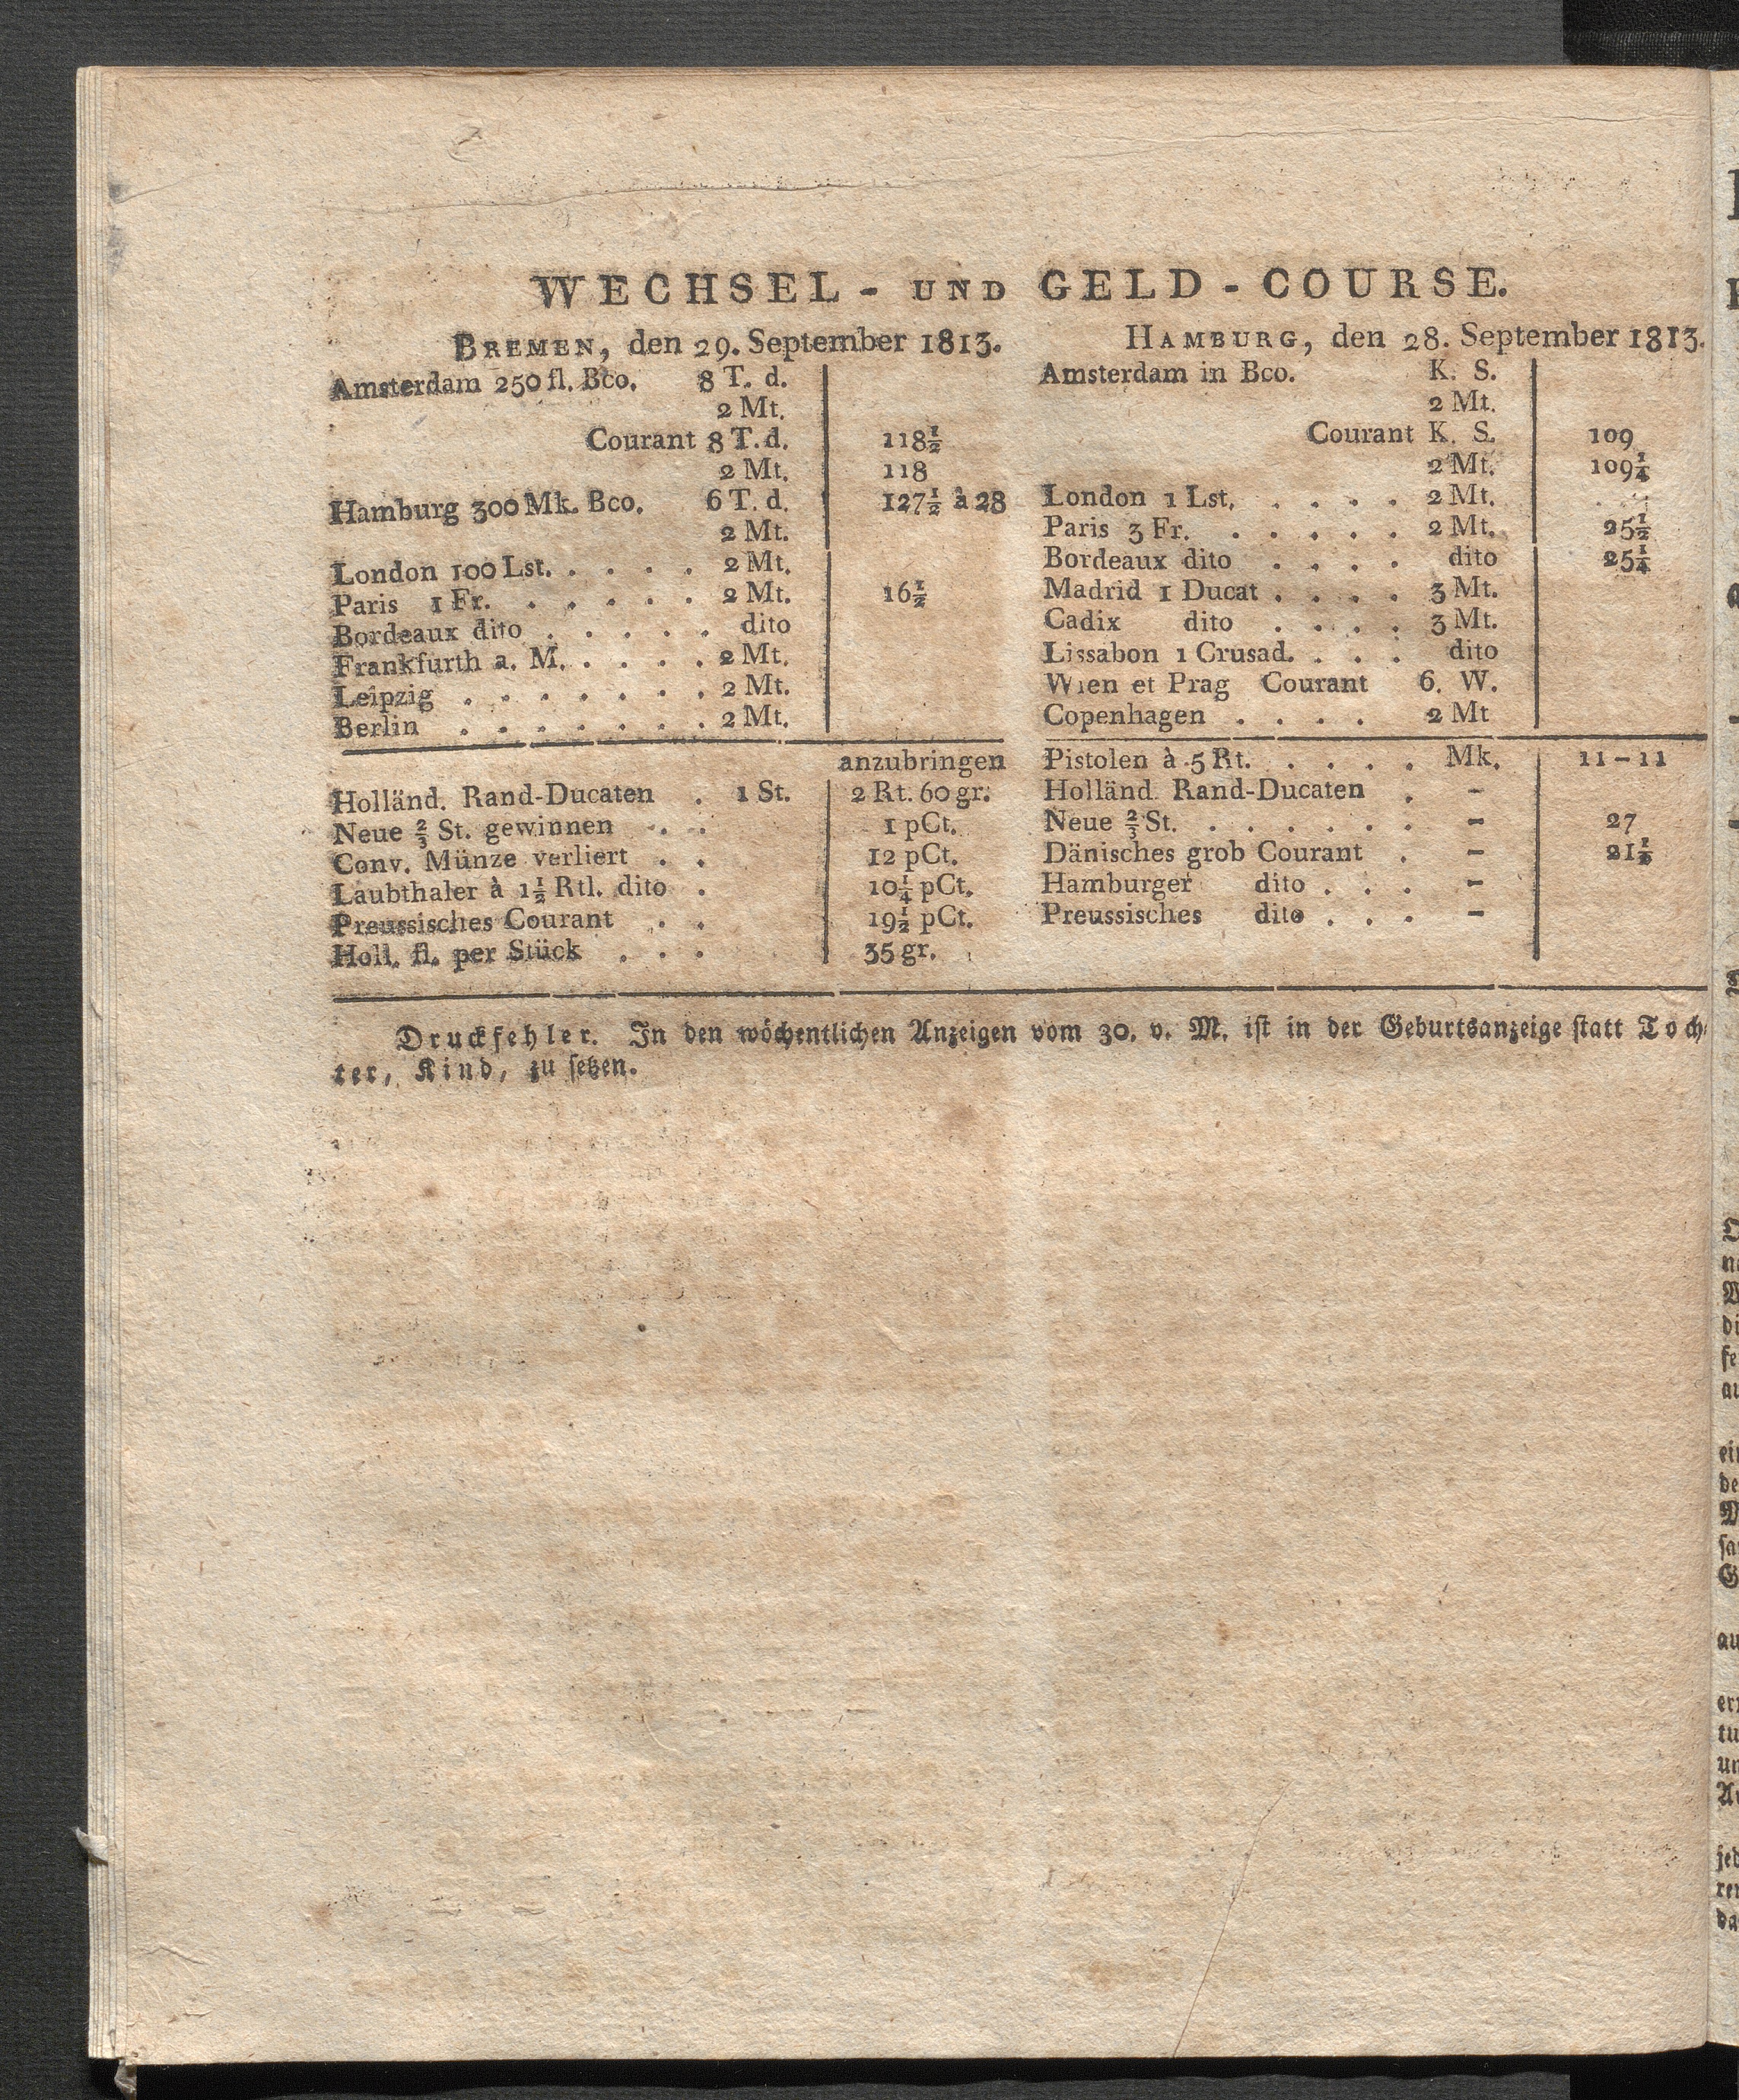 WECHSEL - UND GELD - COURSE.
BREMEN, den 29. September 1813.
Amsterdam 250 fl. Bco. 8 T. d.
2 Mt.
Courant 8 T. d. 118½
2 Mt. 118
Hamburg 300 Mk. Bco. 6 T. d. 127½ à 28
2 Mt.
London 100 Lst. . . . . 2 Mt.
Paris 1 Fr. . . . . . 2 Mt. 16½
Bordeaux dito . . . . . dito
Frankfurth a. M. . . . . 2 Mt.
Leipzig . . . . . . . 2 Mt.
Berlin . . . . . . . 2 Mt.
anzubringen
Holländ. Rand-Ducaten . 1 St. 2 Rt. 60 gr.
Neue ⅔ St. gewinnen . . 1 pCt.
Conv. Münze verliert . . 12 pCt.
Laubthaler à 1½ Rtl. dito . 10¼ pCt.
Preussisches Courant . . 19½ pCt.
Holl. fl. per Stück . . . 35 gr.
HAMBURG, den 28. September 1813.
Amsterdam in Bco. K. S.
2 Mt.
Courant K. S. 109
2 Mt. 109¼
London 1 Lst. . . . . 2 Mt. . . .
Paris 3 Fr. . . . . . 2 Mt. 25½
Bordeaux dito . . . . dito 25¼
Madrid 1 Ducat . . . . 3 Mt.
Cadix dito . . . . 3 Mt.
Lissabon 1 Crusad. . . . dito
Wien et Prag Courant 6. W.
Copenhagen . . . . 2 Mt
Pistolen à 5 Rt. . . . . Mk. 11 - 11
Holländ. Rand-Ducaten . -
Neue ⅔ St. . . . . . . - 27
Dänisches grob Courant . - 21½
Hamburger dito . . . -
Preussisches dito . . . -
Druckfehler. In den wöchentlichen Anzeigen vom 30. v. M. ist in der Geburtsanzeige statt Toch-
ter, Kind, zu setzen.